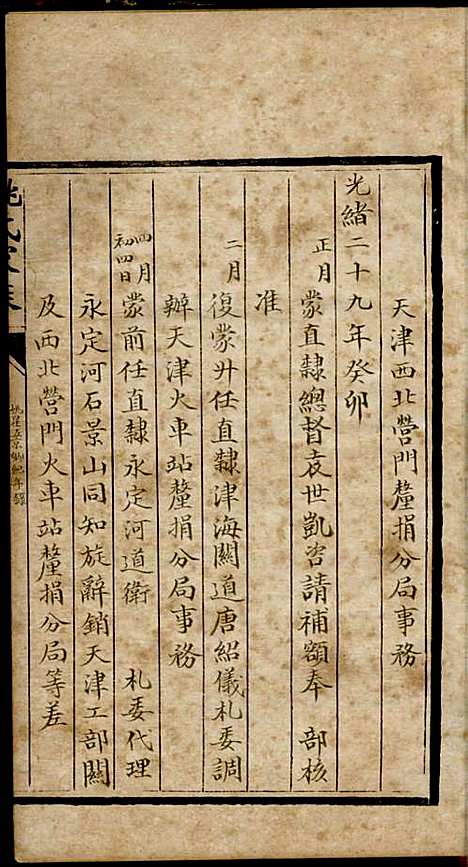 天津西北營門釐捐分局事務
光緒二十九年癸卯
正月 蒙直隸總督袁世凱咨請補額奉 部核
准
二月 復蒙升任直隸津海關道唐紹儀札委調
辦天津火車站釐捐分局事務
四月初四日 蒙前任直隸永定河道衛 札委代理
永定河石景山同知旋辭銷天津工部關
及西北營門火車站釐捐分局等差